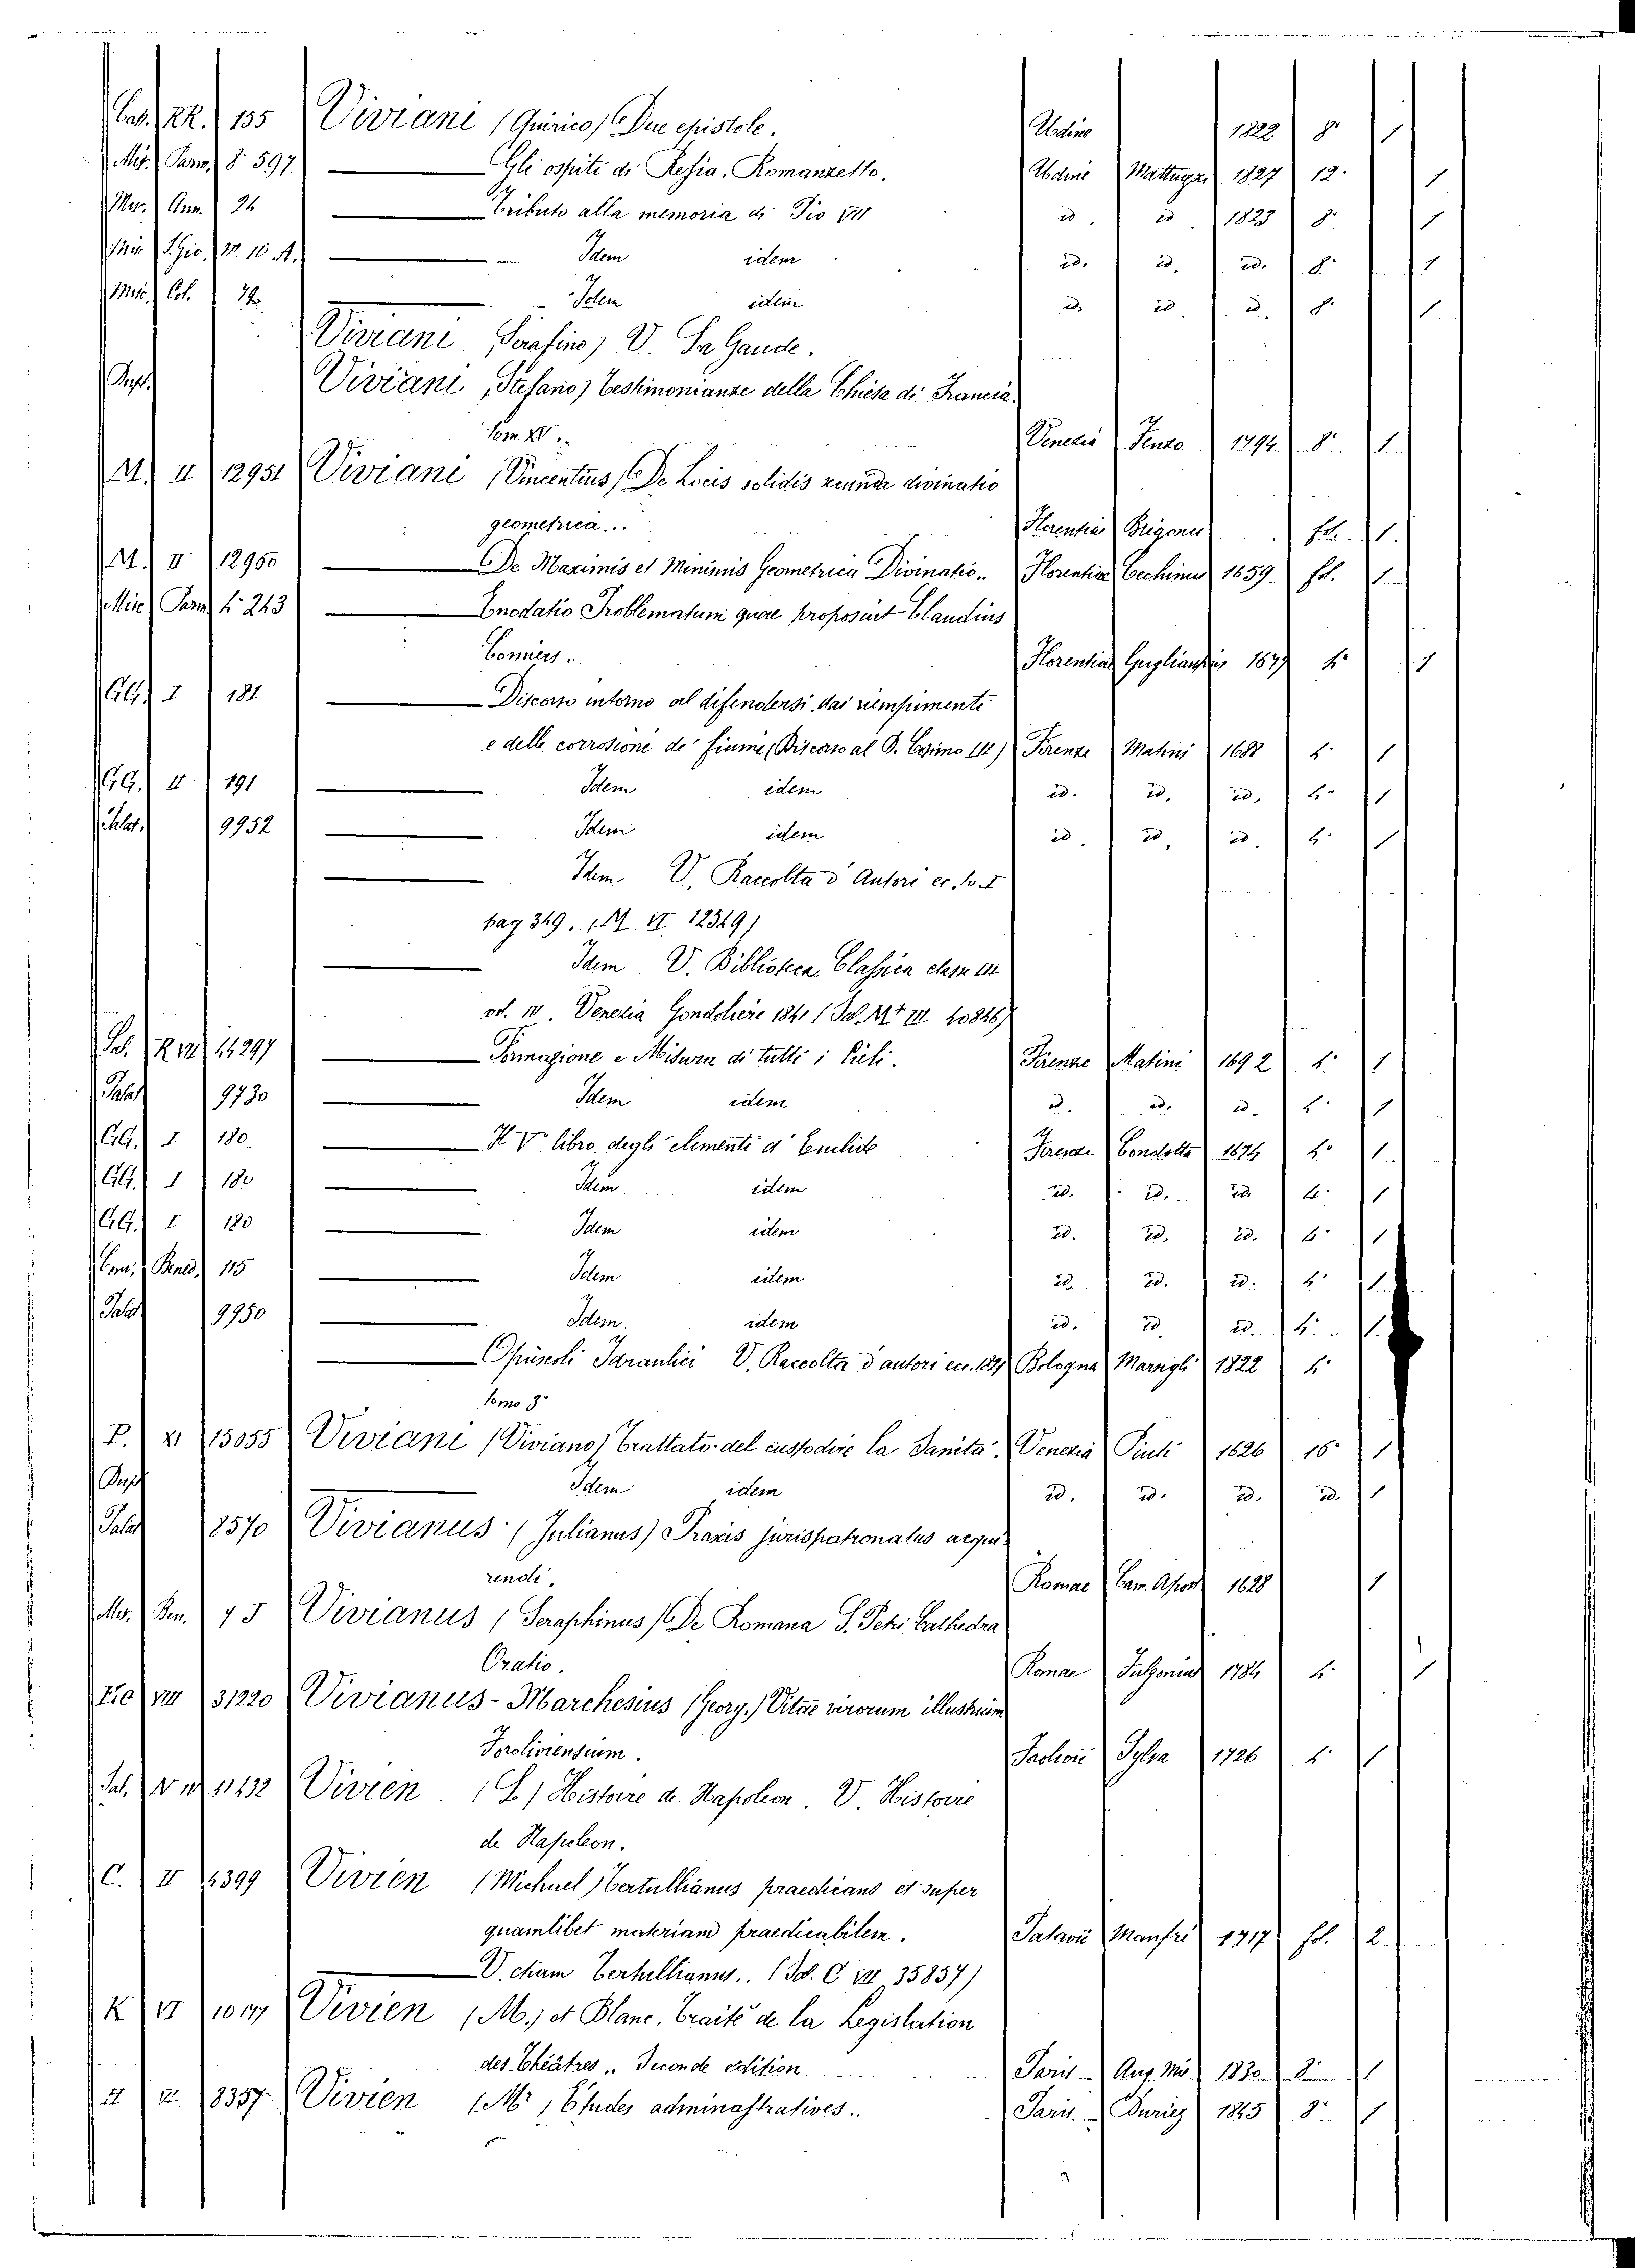 RR. 155 Viviani (Quirico) Due epistole. Udine 1822 8° 1
Parm. 8° 597 Gli ospiti di Resia. Romanzetto. Udine Mattiuzzi 1827 12° 1
Ann. 24 Tributo alla memoria di Pio VII id. id. 1823 8° 1
S. Gio. M. 10 A. Idem idem id. id. id. 8° 1
Idem idem id. id. id. 8° 1
Viviani (Serafino) V. La Gaude.
Viviani (Stefano) Testimonianze della Chiesa di Francia.
Tom. XV.. Venezia Zenzo 1794 8° 1
M. II 12951 Viviani (Vincentius) De Locis solidis secunda divinatio
geometrica... Florentiae Brigonci fol. 1
M. II 12950 De Maximis et Minimis Geometrica Divinatio.. Florentiae Cechini 1659 fol. 1
Misc. Parm. 4° 243 Enodatio Problematum quae proposuit Claudius
Comiers.. Florentiae 1677 4° 1
GG. I 181 Discorso intorno al difendersi dai riempimenti
e delle corrosione de' fiumi (Discorso al S. Cosimo III) Firenze Matini 1688 4° 1
GG. II 191 Idem idem id. id. id. 4° 1
9952 Idem idem id. id. id. 4° 1
Idem V. Raccolta d'Autori ec. to. I
pag 349. (M. VI. 12349)
Idem V. Biblioteca Classica classe III
vol. IV. Venezia Gondoliere 1841 (Sal. III 20846)
Sal. 14297 Formazione e Misura di tutti i Cieli. Firenze Matini 1692 4° 1
Palat. 9730 Idem idem id. id. id. 4° 1
GG. I 180. Il V° libro degli elementi d'Euclide Firenze Condotta 1674 4° 1
GG. I 180 Idem idem id. id. id. 4° 1
GG. I 180 Idem idem id. id. id. 4° 1
Bened. 115 Idem idem id. id. id. 4° 1
Palat. 9950 Idem. idem id. id. id. 4° 1
Opuscoli Idraulici V. Raccolta d'autori ecc. Bologna Marsigli 1822 4°
tomo 3°
P. XI 15055 Viviani (Viviano) Trattato del custodire la Sanità. Venezia Piuti 1626 16° 1
Idem idem id. id. id. id. 1
Palat. 8570 Vivianus (Julianus) Praxis jurispatronatus acqui-
rendi. Romae Cam. Apost. 1628 1
Ben. 7 J Vivianus (Seraphinus) De Romana S. Petri Cathedra
Oratio. Romae Fulgonius 1784 4° 1
VIII 31220 Vivianus-Marchesius (Georg.) Vitae virorum illustrium
Foroliviensium. Forolivii Sylva 1726 4° 1
Sal. 11432 Vivien (L.) Histoire de Napoleon. V. Histoire
de Napoleon.
C. II 4399 Vivien (Michael) Tertullianus praedicans et super
quamlibet materiam praedicabilem. Patavii Manfrè 1717 fol. 2
V. etiam Tertullianus.. (Id. C VII 35857)
K VI Vivien (M.) et Blanc. Traité de la Legislation
des Théâtres.. Seconde edition Paris Aug. Mie. 1830 8° 1
8357 Vivien (Mr) Etudes administratives.. Paris. 1845 8° 1